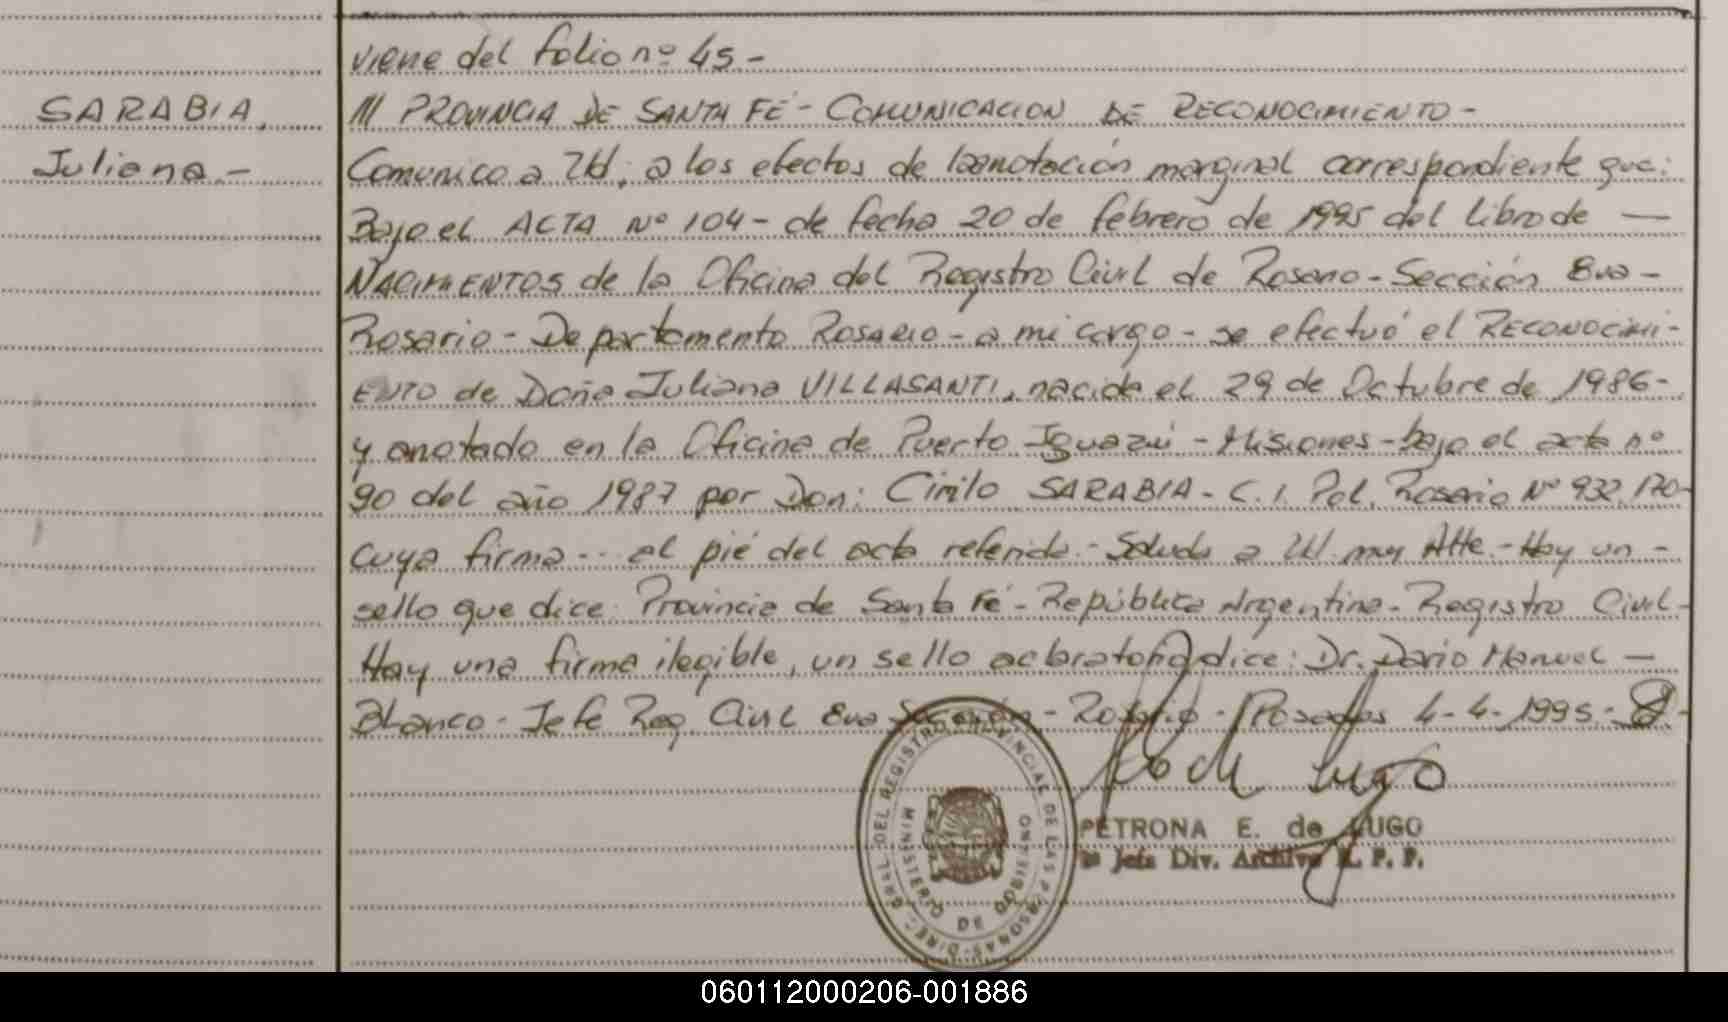 viene del folio nº 45.-
SARABIA,
Juliana.-
/// PROVINCIA DE SANTA FÉ - COMUNICACION DE RECONOCIMIENTO -
Comunico a Ud. a los efectos de la anotación marginal correspondiente que:
Bajo el ACTA Nº 104 - de fecha 20 de febrero de 1995 del Libro de —
NACIMIENTOS de la Oficina del Registro Civil de Rosario - Sección 8va -
Rosario - Departamento ROSARIO - a mi cargo - se efectuó el RECONOCIMI-
ENTO de Doña Juliana VILLASANTI, nacida el 29 de Octubre de 1986 -
y anotado en la Oficina de Puerto Iguazú - Misiones - bajo el acta nº
90 del año 1987 por Don: Cirilo SARABIA - C.I. Pol. Rosario Nº 932.170-
cuya firma... al pié del acta referida.- Saluda a Ud. muy Atte.- Hay un -
sello que dice: Provincia de Santa Fé - República Argentina - Registro Civil -
Hay una firma ilegible, un sello aclaratorio dice: Dr. Dario Manuel —
Blanco - Jefe Reg. Civil 8va Sección - Rosario - Posadas 4-4-1995.-
DIREC. GRAL. DEL REGISTRO PROVINCIAL DE LAS PERSONAS
MINISTERIO DE GOBIERNO
PETRONA E. de LUGO
Jefa Div. Archivo R. P. P.
060112000206-001886